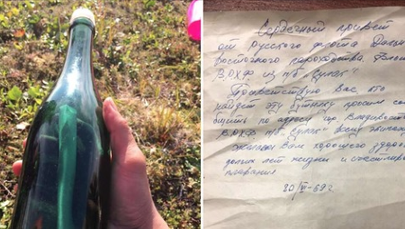 Сердечный привет
от русского флота Дальне-
восточного пароходства. Флот
ВРХФ из п/б „Сулак"
Приветствую Вас, кто
найдет эту бутылку просим сооб-
щить по адресу гор. Владивосток
ВРХФ п/б „Сулак" всему экипажу
желаем Вам хорошего здоровья
долгих лет жизни и счастливого
плавания
20/VI-69г.